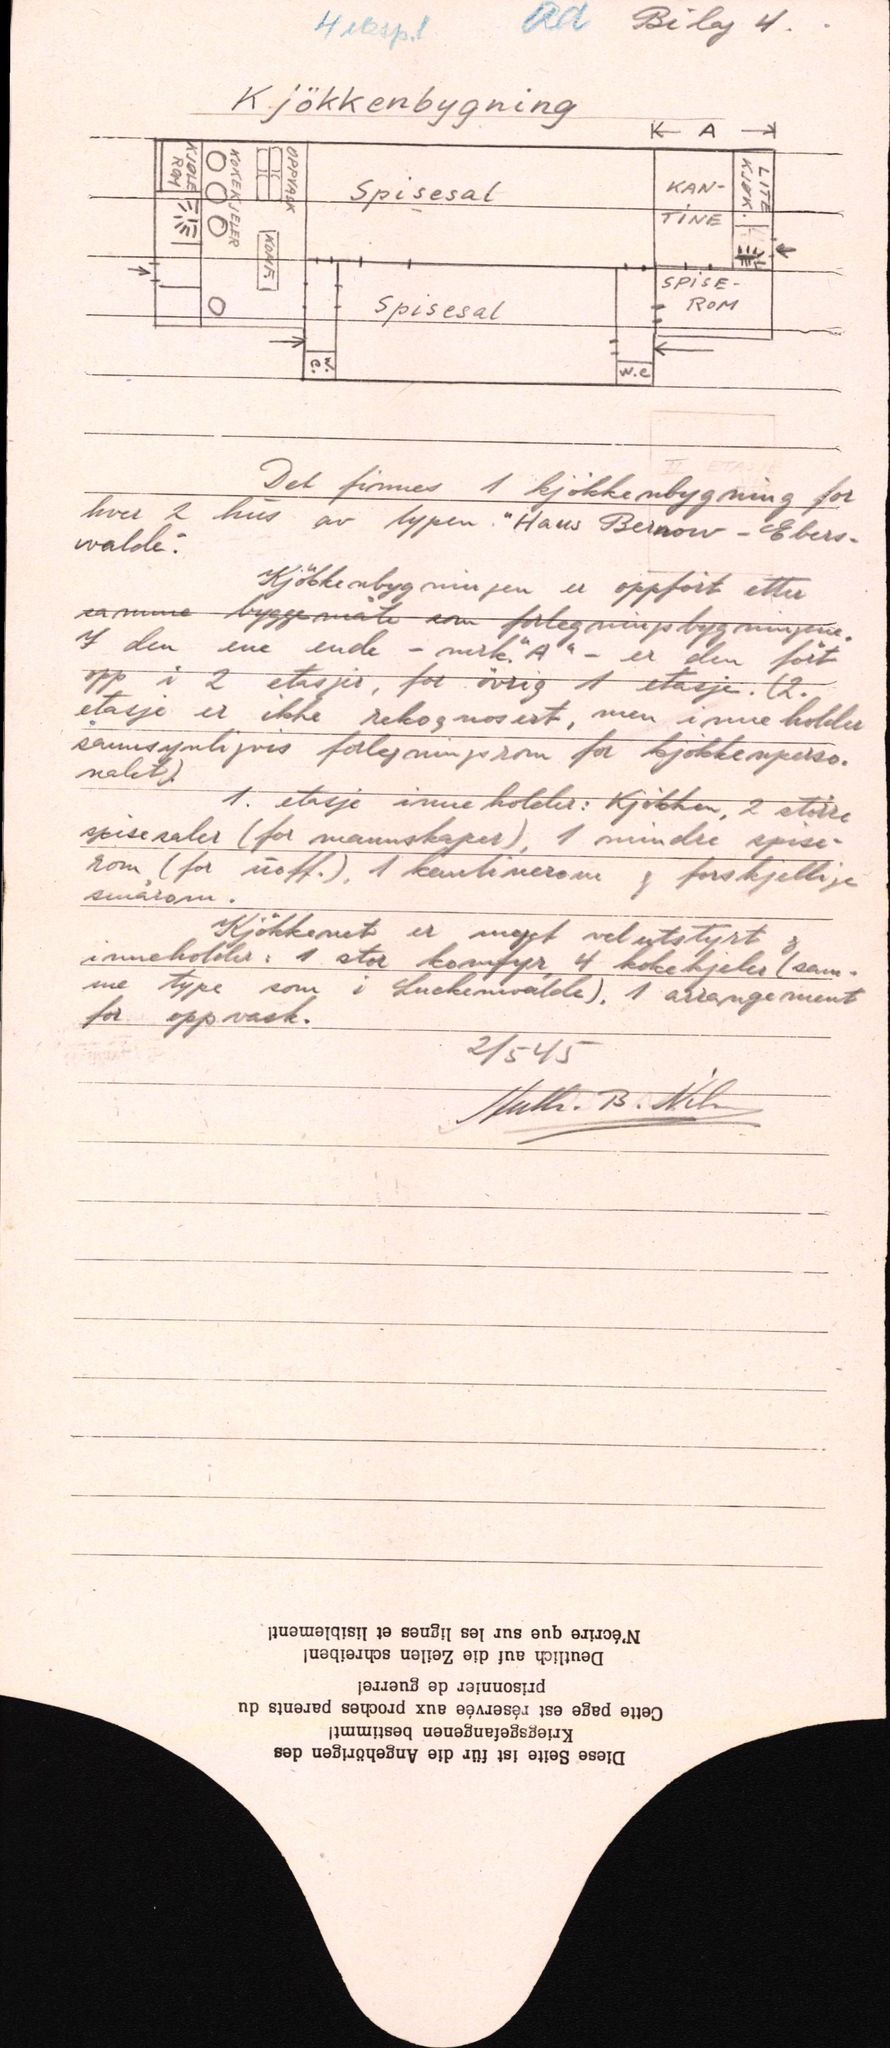 4 eksp.!
ad Bilag 4.
Kjökkenbygning
A
KJØLE
ROM
KOKEKJELER
OPPVASK
KOMF.
Spisesal
KAN-
TINE
LITE
KJØK.
Spisesal
SPISE-
ROM
W.
C.
W.C
II ETASJE
Det finnes 1 kjökkenbygning for
hver 2 hus av typen "Haus Bernow - Ebers-
walde".
Kjökkenbygningen er oppfört etter
samme byggemåte som forlegningsbygningene.
I den ene ende - merk. "A" - er den fört
opp i 2 etasjer, for övrig 1 etasje. (2.
etasje er ikke rekognosert, men inneholder
sannsynligvis forlegningsrom for kjökkenperso-
nalet).
1. etasje inneholder: Kjökken, 2 större
spisesaler (for mannskaper), 1 mindre spise-
rom (for uoff.), 1 kantinerom & forskjellige
smårom.
Kjökkenet er meget vel utstyrt &
inneholder: 1 stor komfyr, 4 kokekjeler (sam-
me type som i Luckenwalde), 1 arrangement
for oppvask.
2/5 45
B.
N'écrire que sur les lignes et lisiblement!
Deutlich auf die Zeilen schreiben!
prisonnier de guerre!
Cette page est réservée aux proches parents du
Kriegsgefangenen bestimmt!
Diese Seite ist für die Angehörigen des